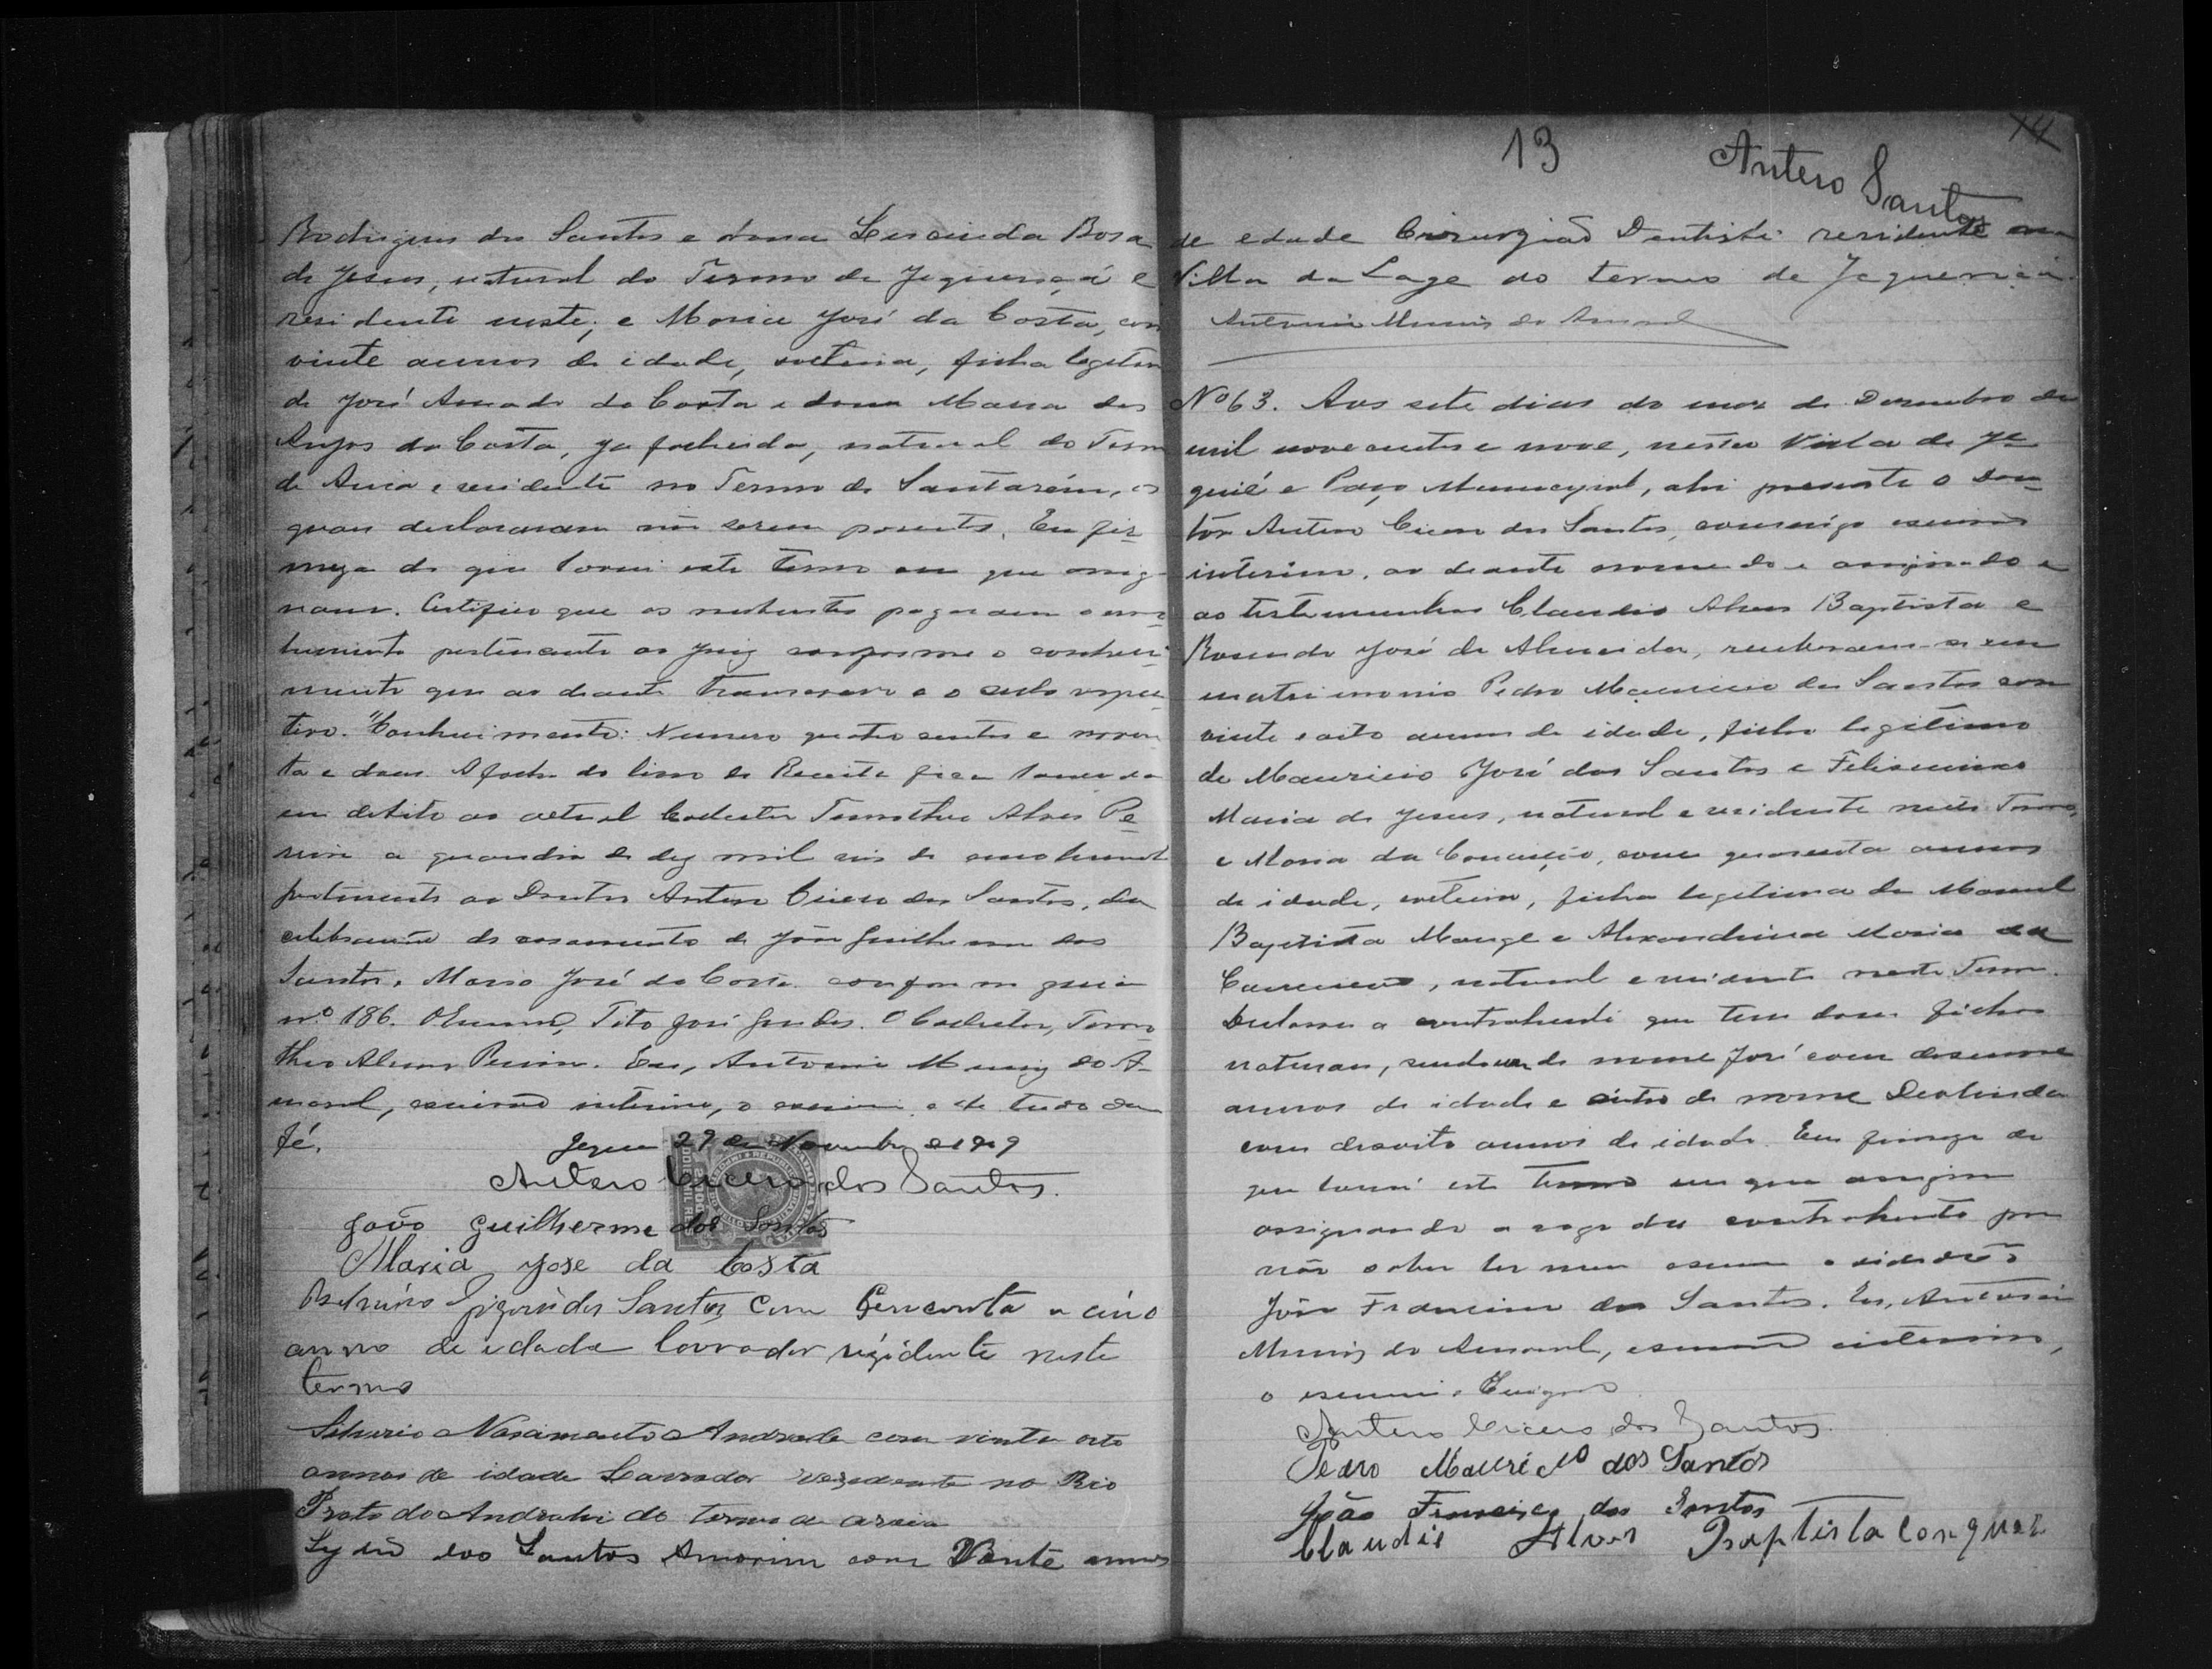 Rodrigues dos Santos e dona Lucinda Rosa
de Jesus, natural do Termo de Jiquiriçá e
residente neste; e Maria José da Costa, com
vinte annos de idade, solteira, filha legitima
de José Amado da Costa e dona Maria dos
Anjos da Costa, ja fallecida, natural do Termo
de Areia e residente no Termo de Santarém, os
quaes declararam não serem parentes. Em fir-
meza do que lavrei este termo em que assig-
nam. Certifico que os nubentes pagaram o emo-
lumento pertencente ao Juiz conforme o conheci-
mento que ao deante transcrevo e o sello respec-
tivo. "Conhecimento: Numero quatro centos e noven-
ta e dous. A folha do livro de Receita fica lançada
em debito ao actual Collector Timotheo Alves Pe-
reira a quantia de dez mil reis de emolumento
pertencente ao Doutor Antero Cicero dos Santos, da
celebração do casamento de João Guilherme dos
Santos e Maria José da Costa conforme guia
nº 186. O Escrivão, Tito José . O Collector, Timo-
theo Alves Pereira. Eu, Antonio Muniz do A-
maral, escrivão interino, o escrevi e de tudo dou
fé.
Jequié 29 de Novembro de 1909
Antero Cicero dos Santos.
João Guilherme dos Santos
Maria Jose da Costa
dos Santos com e cinco
anno de edade lavrador rezidente neste
termo
Nascimento Andrade com vinte oito
annos de idade Lavrador rezedente no Rio
Preto do Andrahi do termo de areia
dos Santos Amorim com Vente annos
13
Antero Santos
14
de edade Cirurgião Dentista residente na
Villa da Lage do termo de Jequiriçá.
Antonio Muniz do Amaral
Nº 63. Aos sete dias do mez de Dezembro de
mil nove centos e nove, nesta Villa de Je-
quié e Paço Municipal, ahi presente o Dou-
tor Antero Cicero dos Santos, commigo escrivão
interino, ao deante nomeado e assignado e
as testemunhas Claudio Alves Baptista e
Rosendo José de Almeida, receberam-se em
matrimonio Pedro Mauricio dos Santos com
vinte e oito annos de idade, filho legitimo
de Mauricio José dos Santos e Felismina
Maria de Jesus, natural e residente neste Termo,
e Maria da Conceição, com quarenta annos
de idade, solteira, filha legitima de Manoel
Baptista Monge e Alexandrina Maria da
Conceição, natural e residente neste Termo.
Declarou a contrahente que tem dous filhos
naturaes, sendo um de nome José com desenove
annos de idade e outro de nome Deolinda
com desoito annos de idade. Em firmeza do
que lavrei este Termo em que assignam
assignando a rogo da contrahente por
não saber ler nem escrever o cidadão
João Francisco dos Santos. Eu, Antonio
Muniz do Amaral, escrivão interino,
o escrevi e assigno
Antero Cicero dos Santos.
Pedro Mauricio dos Santos
João Francisco dos Santos
Claudio Alves Baptista